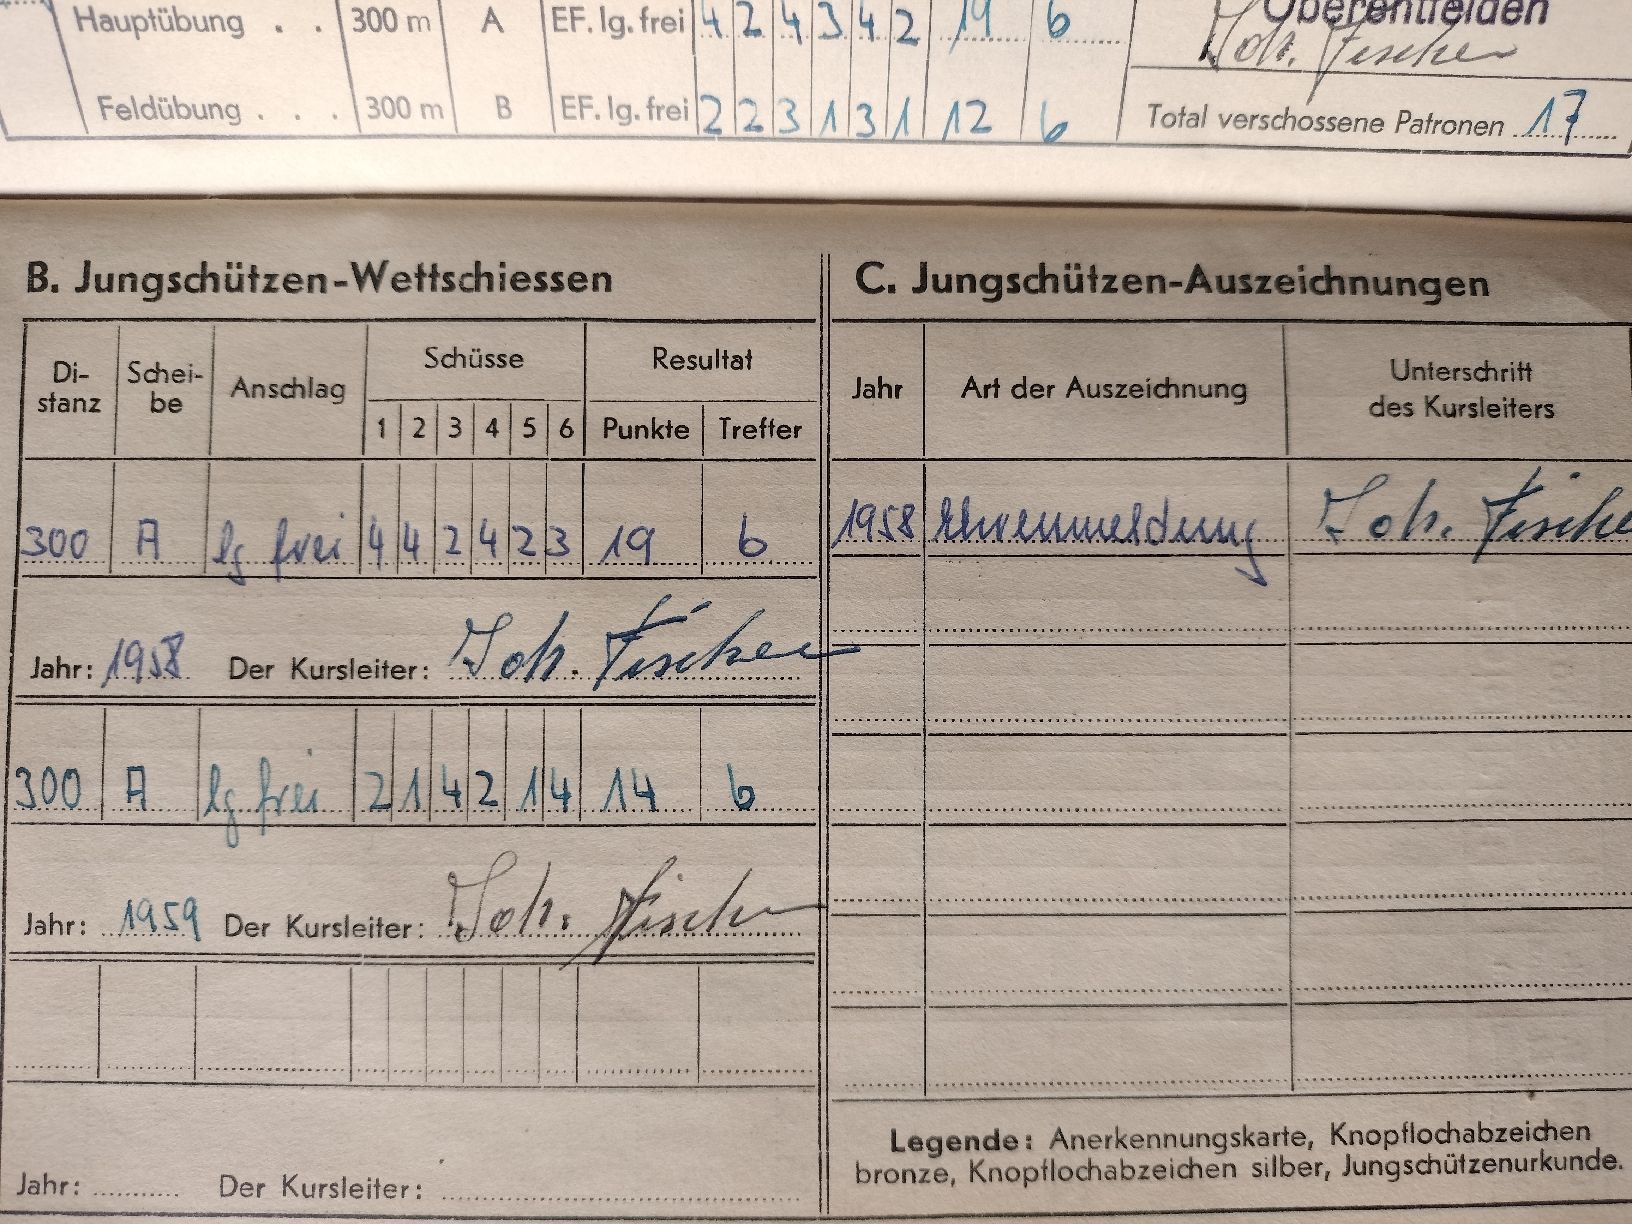 Hauptübung . . 300 m A EF. lg. frei 4 2 4 3 4 2 19 6
Oberentfelden
Joh. Fischer
Feldübung . . . 300 m B EF. lg. frei 2 2 3 1 3 1 12 6
Total verschossene Patronen 17
B. Jungschützen-Wettschiessen
Di-stanz Schei-be Anschlag Schüsse Resultat
1 2 3 4 5 6 Punkte Treffer
300 A lg frei 4 4 2 4 2 3 19 6
Jahr: 1958 Der Kursleiter: Joh. Fischer
300 A lg frei 2 1 4 2 1 4 14 6
Jahr: 1959 Der Kursleiter: Joh. Fischer
Jahr: Der Kursleiter:
C. Jungschützen-Auszeichnungen
Jahr Art der Auszeichnung Unterschrift
des Kursleiters
1958 Ehrenmeldung Joh. Fische
Legende: Anerkennungskarte, Knopflochabzeichen
bronze, Knopflochabzeichen silber, Jungschützenurkunde.